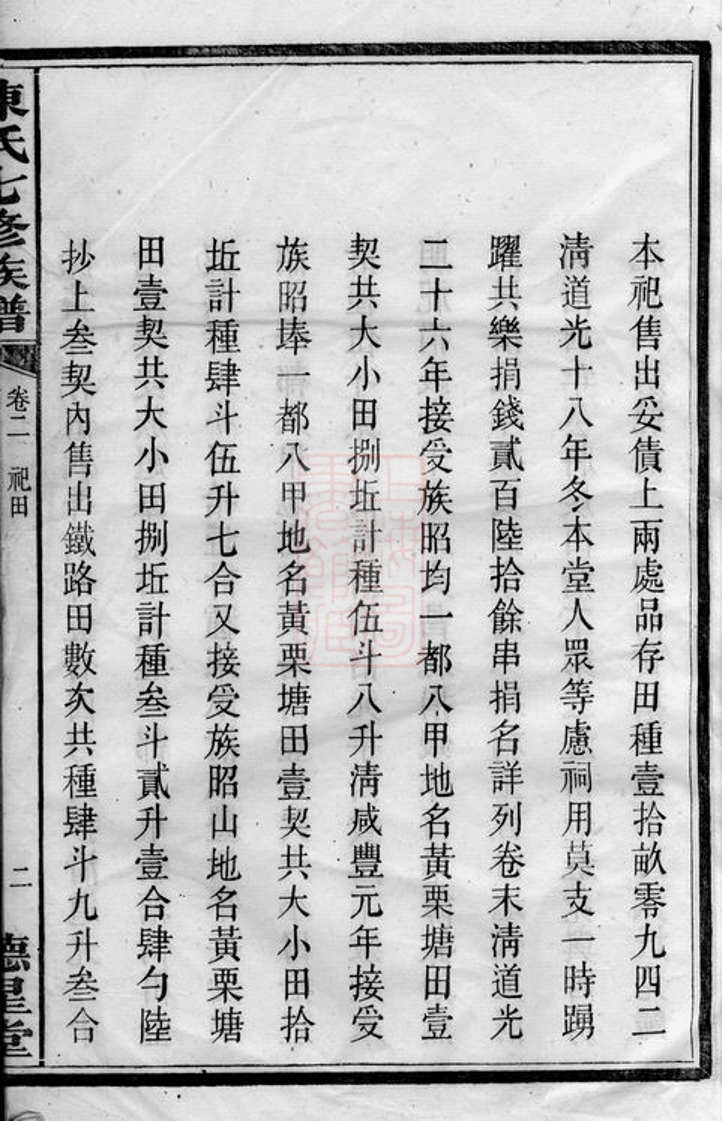 本祀售出妥債上兩處品存田種壹拾畝零九四二
淸道光十八年冬本堂人眾等慮祠用莫支一時踴
躍共樂捐錢貳百陸拾餘串捐名詳列卷末淸道光
二十六年接受族昭均一都八甲地名黃栗塘田壹
契共大小田捌坵計種伍斗八升淸咸豐元年接受
族昭捧一都八甲地名黃栗塘田壹契共大小田拾
坵計種肆斗伍升七合又接受族昭山地名黃栗塘
田壹契共大小田捌坵計種叁斗貳升壹合肆勺陸
抄上叁契內售出鐵路田數次共種肆斗九升叁合
陳氏七修族譜
卷二 祀田
二
德星堂